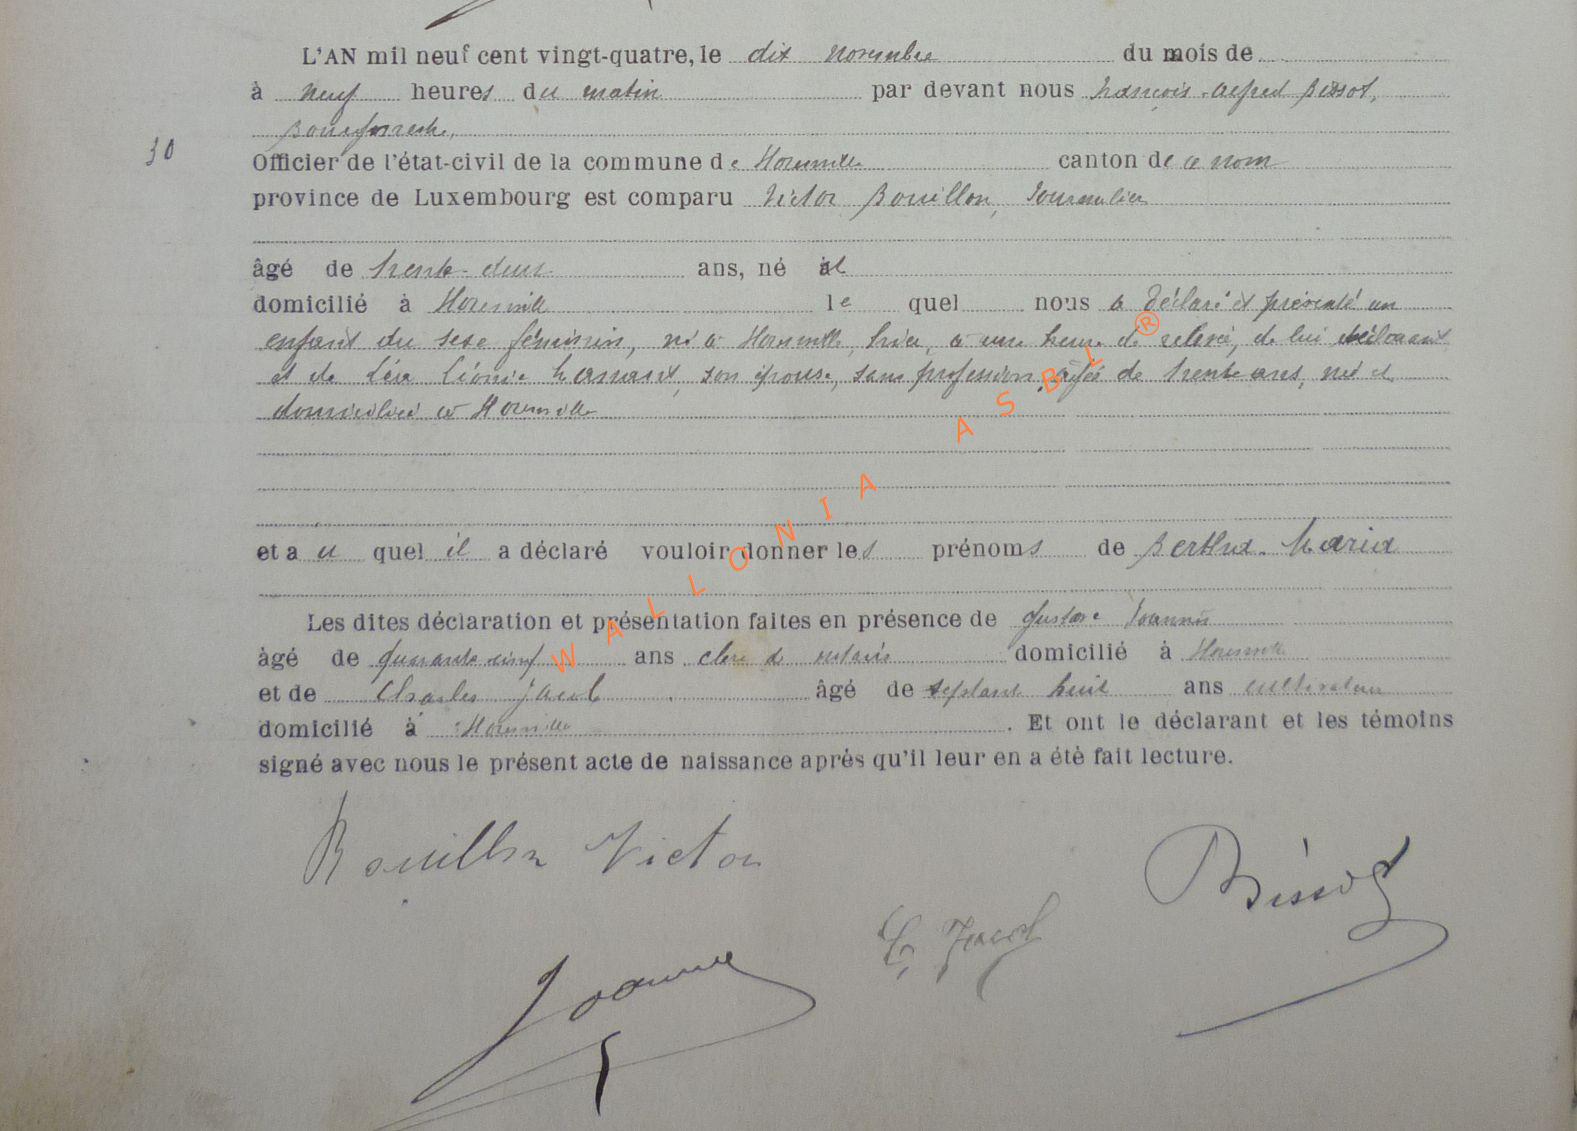 L'AN mil neuf cent vingt-quatre, le dix novembre du mois de
à neuf heures du matin par devant nous François-Alfred Bissot,
Bourgmestre,
30
Officier de l'état-civil de la commune de Houmville canton de ce nom
province de Luxembourg est comparu Victor Bouillon, Journalier
âgé de trente-deux ans, né à
domicilié à le quel nous a déclaré et présenté un
enfant du sexe féminin, né à hier, à une heure de relevée, de lui déclarant
et de Léonie son épouse, sans profession, âgée de trente ans, née et
domiciliée à
et a u quel il a déclaré vouloir donner les prénoms de Bertha-Maria
Les dites déclaration et présentation faites en présence de Gustave Joannes
âgé de quarante cinq ans clerc de notaire domicilié à
et de Charles Jacob âgé de septante huit ans cultivateur
domicilié à . Et ont le déclarant et les témoins
signé avec nous le présent acte de naissance après qu'il leur en a été fait lecture.
Bouillon Victor
Bissot
C. Jacob
Joannes
WALLONIA ASBL ®